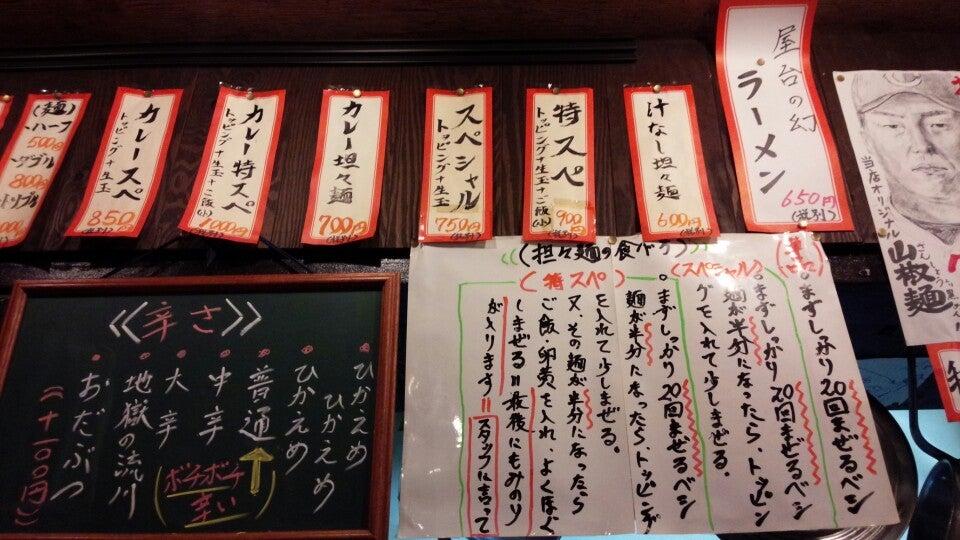 屋台の幻
ラーメン
650円
(税別)
汁なし担々麺
600円
(税別)
特スペ
トッピング+生玉+ご飯(小)
900円
(税別)
スペシャル
トッピング+生玉
750円
(税別)
カレー担々麺
700円
(税別)
カレー特スペ
トッピング+生玉+ご飯(小)
1000円
(税別)
カレースペ
トッピング+生玉
850円
(税別)
(麺)
・ハーフ
500円
・ダブル
800円
・トリプル
当店オリジナル
山椒麺
(担々麺の食べ方)
まずしっかり20回まぜるベシ
(スペシャル)
。まずしっかり20回まぜるベシ
麺が半分になったら、トッピン
グを入れて少しまぜる。
(特スペ)
。まずしっかり20回まぜるベシ
麺が半分になったら、トッピング
を入れて少しまぜる。
又、その麺が半分になったら
ご飯・卵黄を入れ、よくほぐ
しまぜる=最後にもみのり
が入ります=スタッフに言って
《辛さ》
・ひかえめひかえめ
・ひかえめ
・普通
・中辛
・大辛
(ボチボチ辛い)
・地獄の流川
・おだぶつ
(+100円)